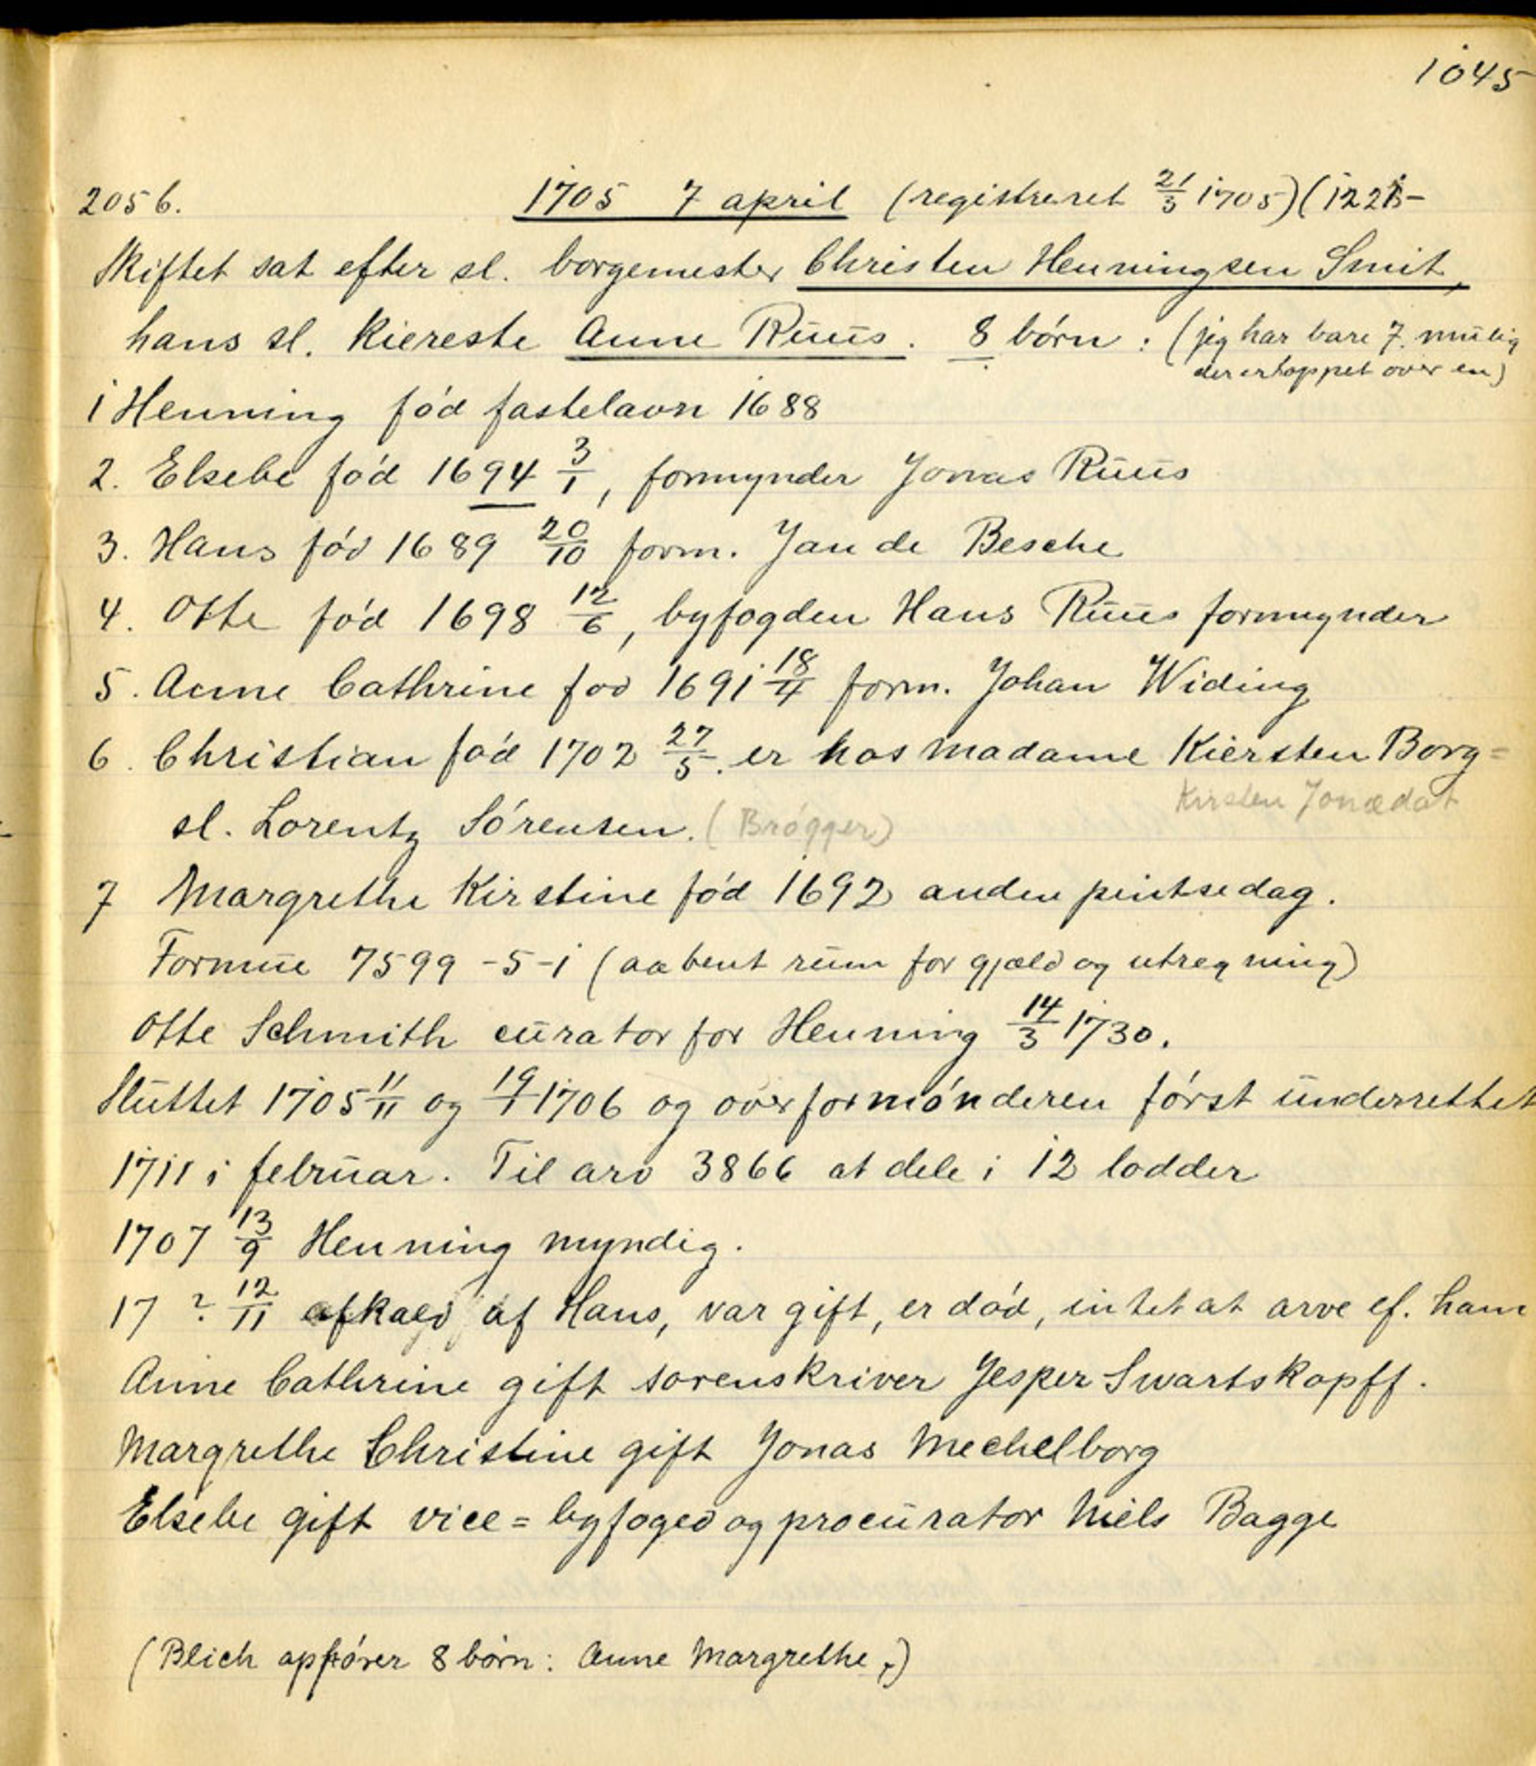 1045
2056. 1705 7 april (registreret 21/3 1705) (
Skiftet sat efter sl. borgemester Christen Henningsen Smit,
hans sl. kiereste Anne Ruus. 8 børn: (jeg har bare 7. mulig
der er hoppet over en)
1 Henning fød fastelavn 1688
2. Elsebe fød 1694 3/1, formynder Jonas Ruus
3. Hans fød 1689 20/10 form. Jan de Besche
4. Otte fød 1698 12/6, byfogden Hans Ruus formynder
5. Anne Cathrine fød 1691 18/4 form. Johan Widing
6. Christian fød 1702 27/5. er hos madame Kiersten Borg=
Kirsten Jonædat
sl. Lorentz Sörensen. (Brøgger)
7 Margrethe Kirstine fød 1692 anden pintsedag.
Formue 7599-5-1 (aabent rum for gjæld og utregning)
Otte Schmith curator for Henning 14/3 1730.
Sluttet 1705 11/11 og 19/1 1706 og overformønderen først underrettet
1711 i februar. Til arv 3866 at dele i 12 lodder
1707 13/9 Henning myndig.
17 ? 12/11 afkald af Hans, var gift, er død, intet at arve ef. ham
Anne Cathrine gift sorenskriver Jesper Swartskopff.
Margrethe Christine gift Jonas Mechelborg
Elsebe gift vice=byfoged og procurator Niels Bagge
(Blich opfører 8 børn: Anne Margrethe,)